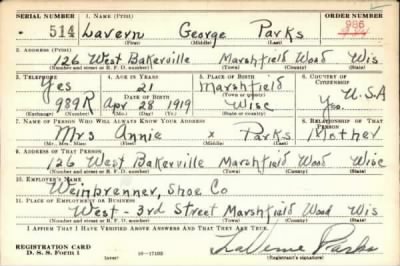 SERIAL NUMBER 1. NAME (Print) ORDER NUMBER
514 Lavern George Parks 986
(First) (Middle) (Last)
2. ADDRESS (Print)
126 West Bakerville Marshfield Wood Wis
(Number and street or R. F. D. number) (Town) (County) (State)
3. TELEPHONE 4. AGE IN YEARS 5. PLACE OF BIRTH 6. COUNTRY OF CITIZENSHIP
Yes 21 Marshfield U.S.A
DATE OF BIRTH (Town or county)
989R Apr 28 1919 Wisc Yes.
(Exchange) (Number) (Mo.) (Day) (Yr.) (State or country)
7. NAME OF PERSON WHO WILL ALWAYS KNOW YOUR ADDRESS 8. RELATIONSHIP OF THAT PERSON
Mrs Annie x Parks Mother
(Mr., Mrs., Miss) (First) (Middle) (Last)
9. ADDRESS OF THAT PERSON
126 West Bakerville Marshfield Wood Wisc
(Number and street or R. F. D. number) (Town) (County) (State)
10. EMPLOYER'S NAME
Weinbrenner, Shoe Co
11. PLACE OF EMPLOYMENT OR BUSINESS
West - 3rd Street Marshfield Wood Wis
(Number and street or R. F. D. number) (Town) (County) (State)
I AFFIRM THAT I HAVE VERIFIED ABOVE ANSWERS AND THAT THEY ARE TRUE.
REGISTRATION CARD
D. S. S. Form 1 16-17105 LaVerne Parks
(Registrant's signature)